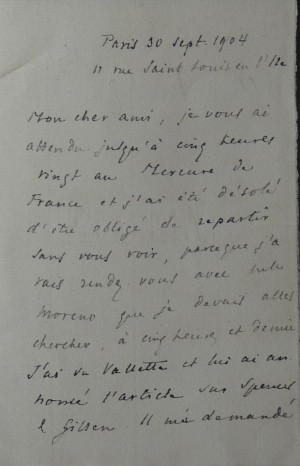 Paris 30 sept. 1904
11 rue Saint Louis en l'Ile
Mon cher ami, je vous ai
attendu jusqu'à cinq heures
vingt au Mercure de
France et j'ai été désolé
d'être obligé de repartir
sans vous voir, parceque j'a
vais rendez-vous avec
Moreno que je devais aller
chercher, à cinq heures et demie
J'ai vu Vallette et lui ai an
noncé l'article sur Spencer
& Gillen. Il m'a demandé